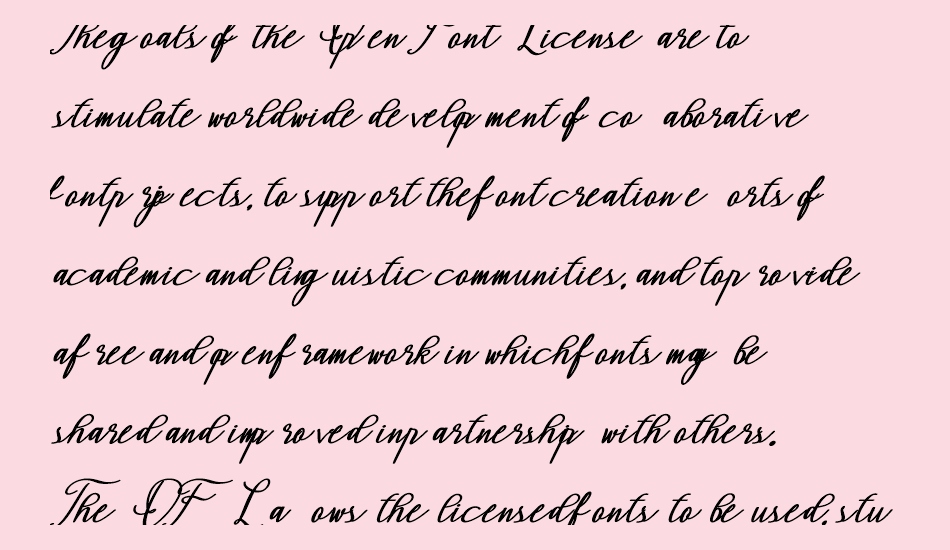 The goals of the Open Font License are to
stimulate worldwide development of co aborative
font projects, to support the font creation e orts of
academic and linguistic communities, and to provide
a free and open framework in which fonts may be
shared and improved in partnership with others.
The OFL a ows the licensed fonts to be used, stu